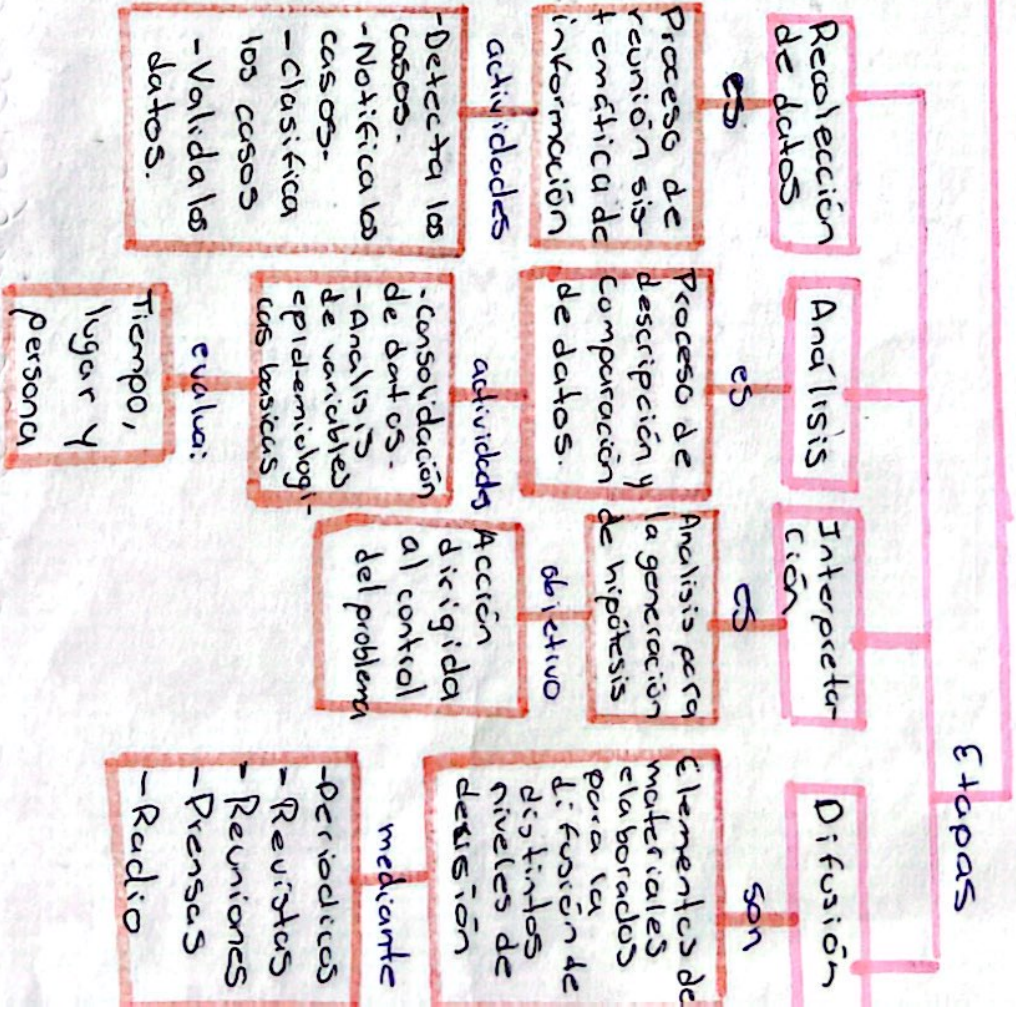 Etapas
Recolección
de datos
es
Proceso de
reunión sis-
temática de
información
actividades
-Detecta los
casos.
-Notifica los
casos.
-Clasifica
los casos
-Valida los
datos.
Análisis
es
Proceso de
descripción y
comparación
de datos.
actividades
-consolidación
de datos.
-Analisis
de variables
epidemiologi-
cas basicas
evalua:
Tiempo,
lugar y
persona
Interpreta-
ción
es
Analisis para
la generación
de hipótesis
objetivo
Acción
dirigida
al control
del problema
Difusión
son
Elementos de
materiales
elaborados
para la
difusión de
distintos
niveles de
desisión
mediante
-periodicos
-Revistas
-Reuniones
-Prensas
-Radio